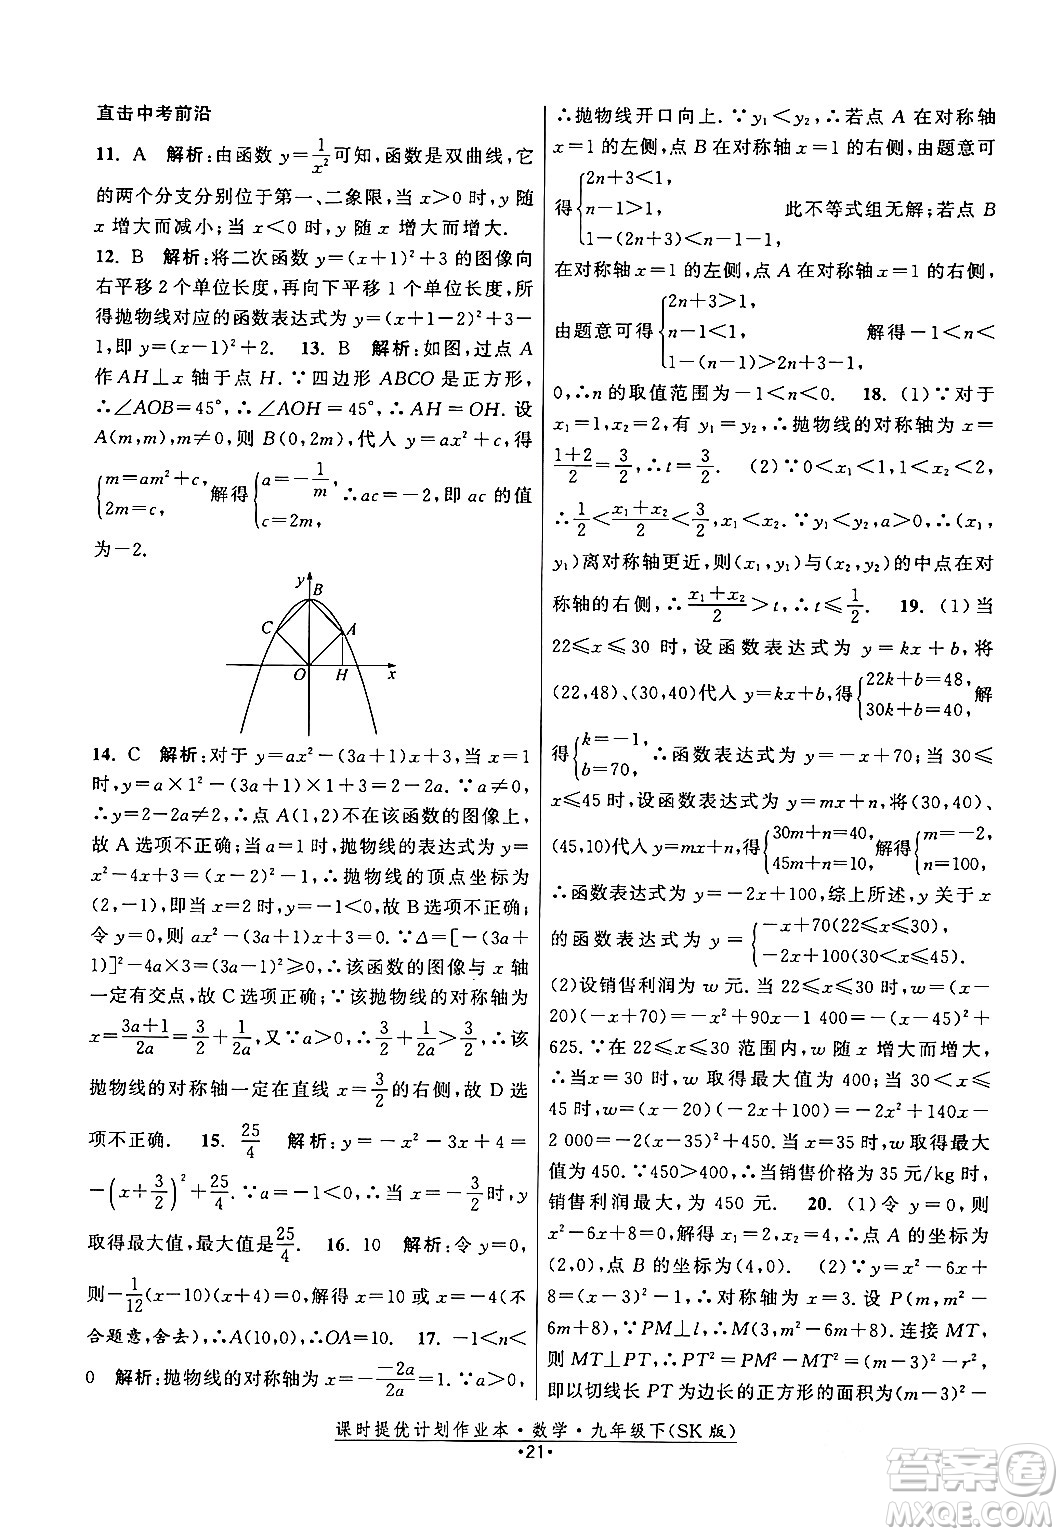 直击中考前沿
11. A 解析:由函数 y=1/x²可知,函数是双曲线,它
的两个分支分别位于第一、二象限,当 x>0 时,y 随
x 增大而减小;当 x<0 时,y 随 x 增大而增大.
12. B 解析:将二次函数 y=(x+1)²+3 的图像向
右平移 2 个单位长度,再向下平移 1 个单位长度,所
得抛物线对应的函数表达式为 y=(x+1-2)²+3-
1,即 y=(x-1)²+2. 13. B 解析:如图,过点 A
作 AH⊥x 轴于点 H.∵四边形 ABCO 是正方形,
∴∠AOB=45°,∴∠AOH=45°,∴AH=OH.设
A(m,m),m≠0,则 B(0,2m),代入 y=ax²+c,得
{m=am²+c, 2m=c, 解得{a=-1/m c=2m, ∴ac=-2,即 ac 的值
为-2.
y
B
C
A
O
H
x
14. C 解析:对于 y=ax²-(3a+1)x+3,当 x=1
时,y=a×1²-(3a+1)×1+3=2-2a.∵a≠0,
∴y=2-2a≠2,∴点 A(1,2)不在该函数的图像上,
故 A 选项不正确;当 a=1 时,抛物线的表达式为
y=x²-4x+3,∴抛物线的顶点坐标为
(2,-1),即当 x=2 时,y=-1<0,故 B 选项不正确;
令 y=0,则 ax²-(3a+1)x+3=0.∵Δ=[-(3a+
1)]²-4a×3=(3a-1)²≥0,∴该函数的图像与 x 轴
一定有交点,故 C 选项正确;∵该抛物线的对称轴为
x=3a+1/2a=3/2+1/2a,又∵a>0,∴3/2+1/2a>3/2,∴该
抛物线的对称轴一定在直线 x=3/2的右侧,故 D 选
项不正确. 15. 25/4 解析:y=-x²-3x+4=
-(x+3/2)²+25/4.∵a=-1<0,∴当 x=-3/2时,y
取得最大值,最大值是25/4. 16. 10 解析:令 y=0,
则-1/12(x-10)(x+4)=0,解得 x=10 或 x=-4(不
合题意,舍去),∴A(10,0),∴OA=10. 17. -1<n<
0 解析:抛物线的对称轴为 x=--2a/2a=1.∵a>0,
∴抛物线开口向上.∵y₁<y₂,∴若点 A 在对称轴
x=1 的左侧,点 B 在对称轴的右侧,由题意可
得{2n+3<1, n-1>1, 1-(2n+3)<n-1-1, 此不等式组无解;若点 B
在对称轴 x=1 的左侧,点 A 在对称轴的右侧,
由题意可得{2n+3>1, n-1<1, 1-(n-1)>2n+3-1, 解得-1<n<
0,∴n 的取值范围为-1<n<0. 18. (1)∵对于
x₁=1,x₂=2,有 y₁=y₂,∴抛物线的对称轴为 x=
1+2/2=3/2,∴t=3/2. (2)∵0<x₁<1,1<x₂<2,
∴1/2<x₁+x₂/2<3/2,x₁<x₂.∵y₁<y₂,a>0,∴(x₁,
y₁)离对称轴更近,∴(x₁,y₁)与(x₂,y₂)的中点在对
称轴的右侧,∴x₁+x₂/2>t,∴t≤1/2. 19. (1)当
22≤x≤30 时,设函数表达式为 y=kx+b,将
(22,48)、(30,40)代入 y=kx+b,得{22k+b=48, 30k+b=40, 解
得{k=-1, b=70, ∴函数表达式为 y=-x+70;当 30≤
x≤45 时,设函数表达式为 y=mx+n,将(30,40)、
(45,10)代入 y=mx+n,得{30m+n=40, 45m+n=10, 解得{m=-2, n=100,
∴函数表达式为 y=-2x+100,综上所述,y 关于 x
的函数表达式为 y={-x+70(22≤x≤30), -2x+100(30≤x≤45).
(2)设销售利润为 w 元.当 22≤x≤30 时,w=(x-
20)(-x+70)=-x²+90x-1 400=-(x-45)²+
625.∵在 22≤x≤30 范围内,w 随 x 增大而增大,
∴当 x=30 时,w 取得最大值为 400;当 30<x≤
45 时,w=(x-20)(-2x+100)=-2x²+140x-
2 000=-2(x-35)²+450,当 x=35 时,w 取得最大
值为 450.∵450>400,∴当销售价格为 35 元/kg 时,
销售利润最大,为 450 元. 20. (1)令 y=0,则
x²-6x+8=0,解得 x₁=2,x₂=4,∴点 A 的坐标为
(2,0),点 B 的坐标为(4,0). (2)∵y=x²-6x+
8=(x-3)²-1,∴对称轴为 x=3.设 P(m,m²-
6m+8),∵PM⊥l,∴M(3,m²-6m+8),连接 MT,
则 MT⊥PT,∴PT²=PM²-MT²=(m-3)²-r²,
即以切线长 PT 为边长的正方形的面积为(m-3)²-
课时提优计划作业本·数学·九年级下(SK 版)
·21·
答案圈
MXQE.COM